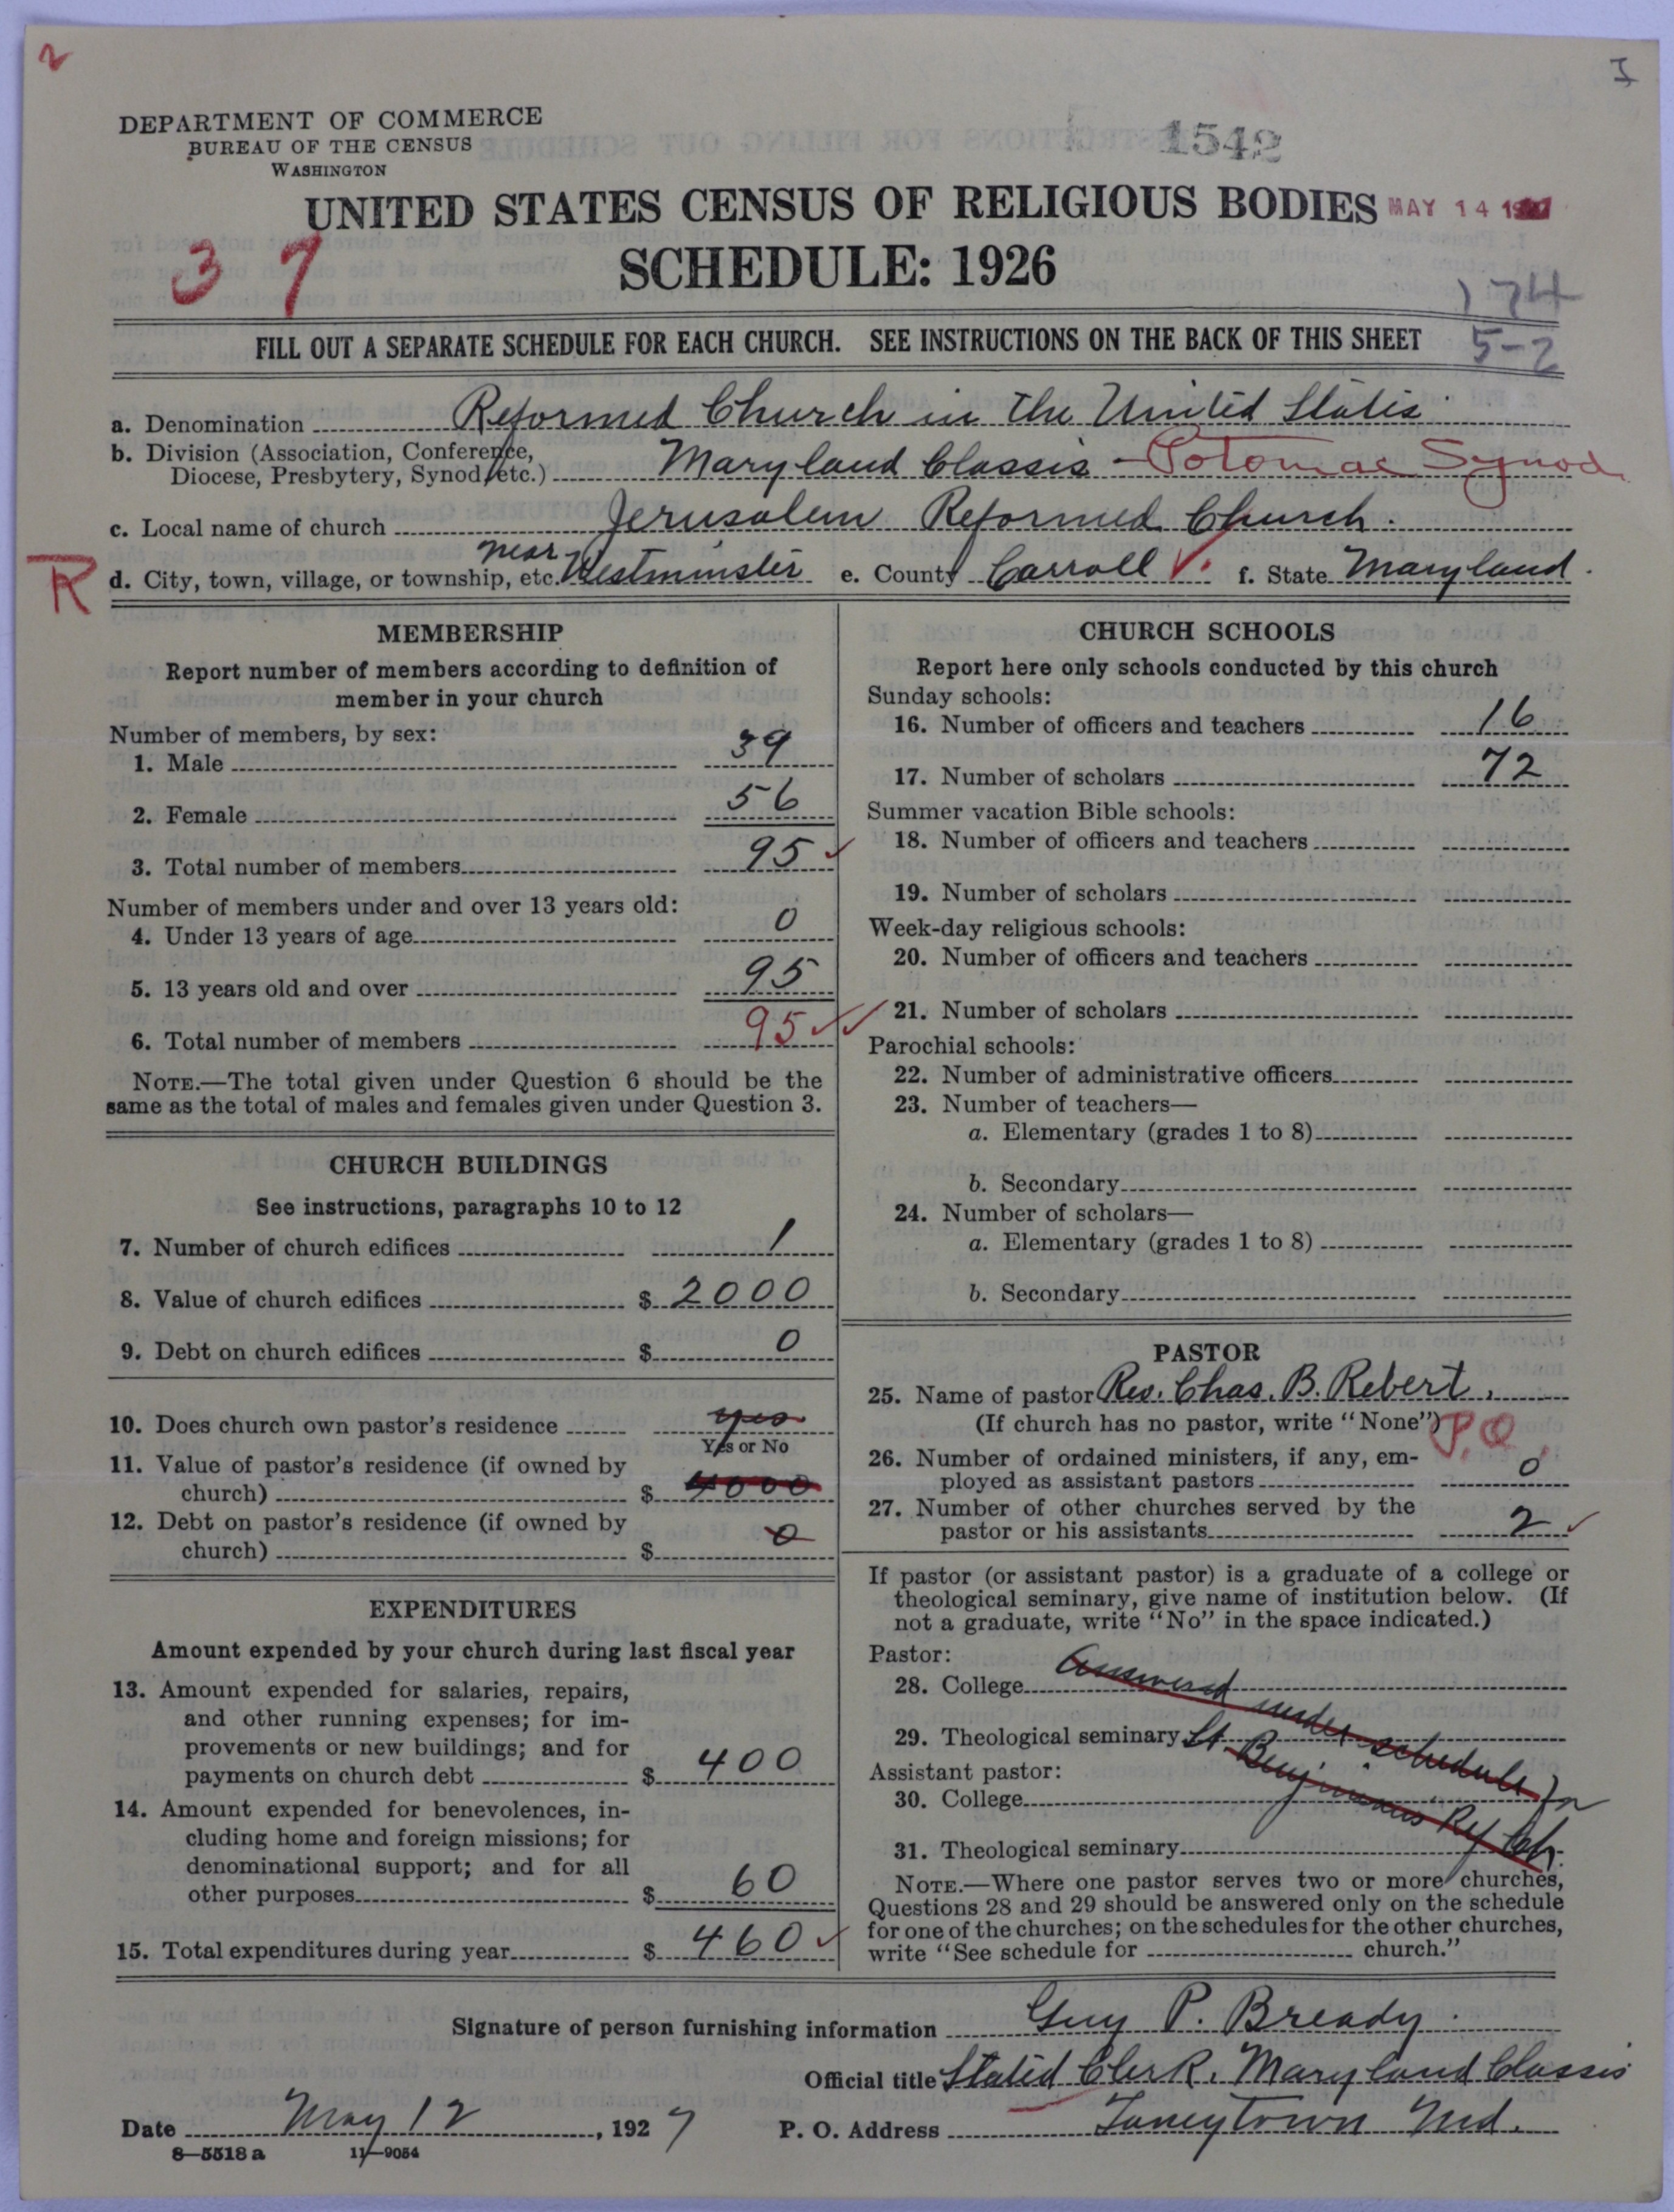 2
I
DEPARTMENT OF COMMERCE
BUREAU OF THE CENSUS
WASHINGTON
1542
UNITED STATES CENSUS OF RELIGIOUS BODIES MAY 14 1927
SCHEDULE: 1926
3 7
174
FILL OUT A SEPARATE SCHEDULE FOR EACH CHURCH. SEE INSTRUCTIONS ON THE BACK OF THIS SHEET
5-2
a. Denomination Reformed Church in the United States
b. Division (Association, Conference,
Diocese, Presbytery, Synod, etc.) Maryland Classis - Potomac Synod
c. Local name of church Jerusalem Reformed Church.
near
R d. City, town, village, or township, etc. Westminster e. County Carroll f. State Maryland.
MEMBERSHIP
Report number of members according to definition of
member in your church
Number of members, by sex:
1. Male 39
2. Female 56
3. Total number of members 95
Number of members under and over 13 years old:
4. Under 13 years of age 0
5. 13 years old and over 95
6. Total number of members 95
NOTE.—The total given under Question 6 should be the
same as the total of males and females given under Question 3.
CHURCH BUILDINGS
See instructions, paragraphs 10 to 12
7. Number of church edifices 1
8. Value of church edifices $ 2000
9. Debt on church edifices $ 0
10. Does church own pastor's residence yes
Yes or No
11. Value of pastor's residence (if owned by
church) $ 4000
12. Debt on pastor's residence (if owned by
church) $ 0
EXPENDITURES
Amount expended by your church during last fiscal year
13. Amount expended for salaries, repairs,
and other running expenses; for im-
provements or new buildings; and for
payments on church debt $ 400
14. Amount expended for benevolences, in-
cluding home and foreign missions; for
denominational support; and for all
other purposes $ 60
15. Total expenditures during year $ 460
CHURCH SCHOOLS
Report here only schools conducted by this church
Sunday schools:
16. Number of officers and teachers 16
17. Number of scholars 72
Summer vacation Bible schools:
18. Number of officers and teachers
19. Number of scholars
Week-day religious schools:
20. Number of officers and teachers
21. Number of scholars
Parochial schools:
22. Number of administrative officers
23. Number of teachers—
a. Elementary (grades 1 to 8)
b. Secondary
24. Number of scholars—
a. Elementary (grades 1 to 8)
b. Secondary
PASTOR
25. Name of pastor Rev. Chas. B. Rebert.
(If church has no pastor, write "None") P.Q
26. Number of ordained ministers, if any, em-
ployed as assistant pastors 0
27. Number of other churches served by the
pastor or his assistants 2
If pastor (or assistant pastor) is a graduate of a college or
theological seminary, give name of institution below. (If
not a graduate, write "No" in the space indicated.)
Pastor:
28. College
Answered under schedule for
29. Theological seminary
St. Benjamin's Ref Ch.
Assistant pastor:
30. College
31. Theological seminary
NOTE.—Where one pastor serves two or more churches,
Questions 28 and 29 should be answered only on the schedule
for one of the churches; on the schedules for the other churches,
write "See schedule for church."
Signature of person furnishing information Guy P. Bready.
Official title Stated Clerk, Maryland Classis
Date May 12, 1927 P. O. Address Taneytown Md.
8—5518 a 11—9054